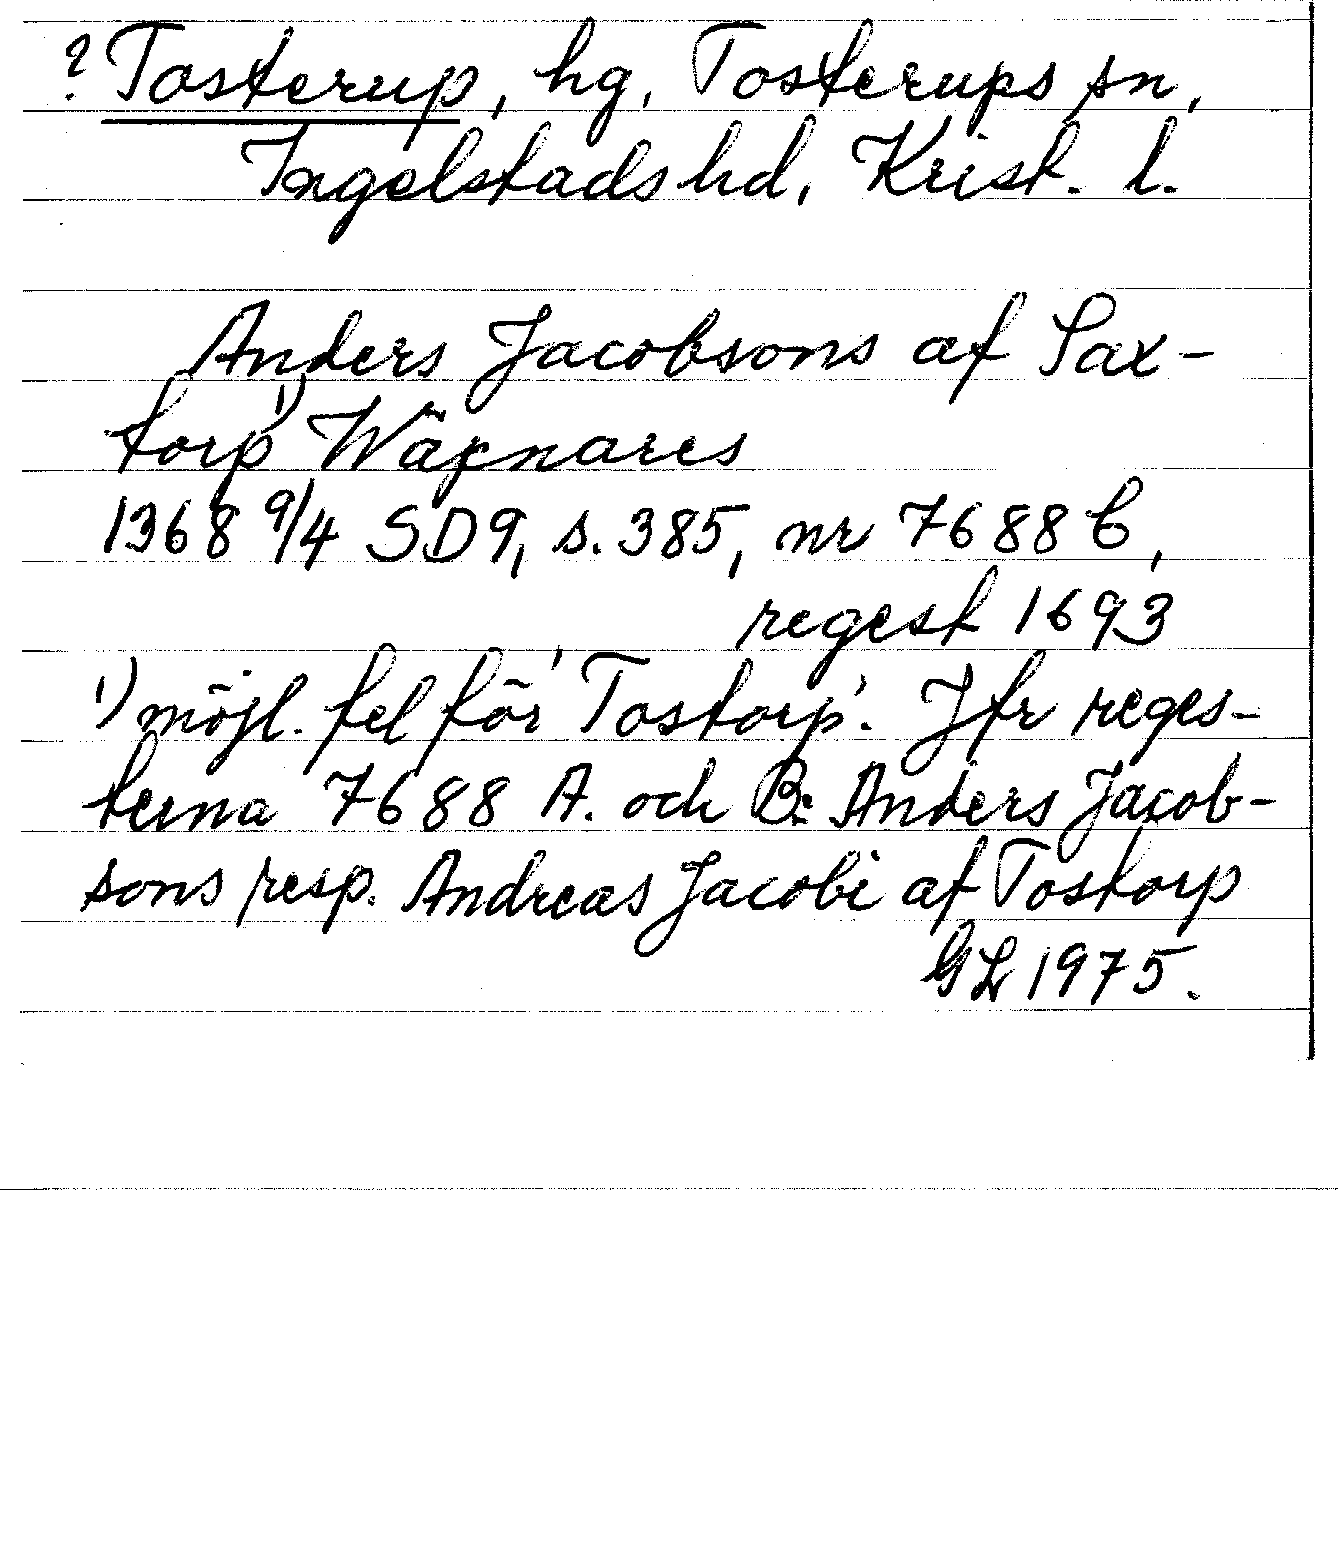 ? Tosterup, hg, Tosterups sn,
Ingelstads hd, Krist. l.
Anders Jacobsons af Sax-
torp 1) Wäpnares
1368 9/4 SD9, s. 385, nr 7688 C,
regest 1693
1) möjl. fel för 'Tostorp'. Jfr reges-
terna 7688 A. och B: Anders Jacob-
sons resp. Andreas Jacobi af Tostorp
GL 1975.